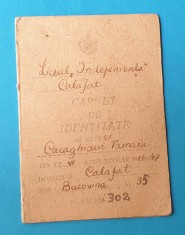 Liceul „Independența"
Calafat
CARNET
DE
IDENTITATE
al elevei
Caraghiaur Tamara
DIN CL. V ANUL ȘCOLAR
DOMICILIUL Calafat
Bucovina 35
302